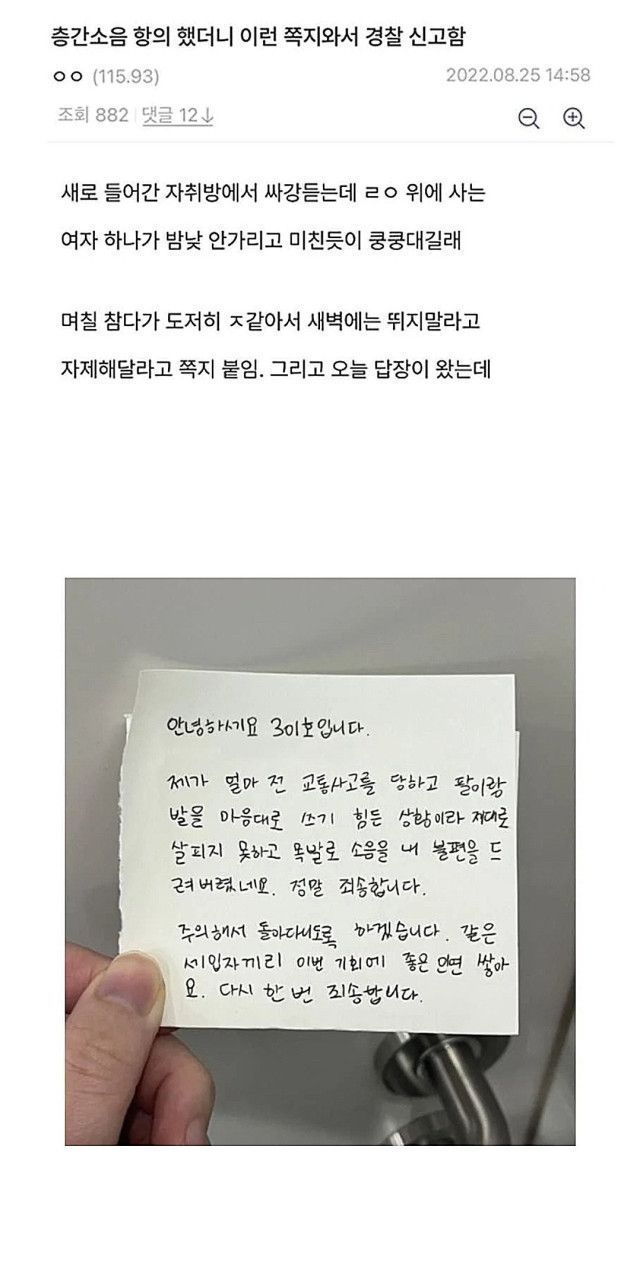 층간소음 항의 했더니 이런 쪽지와서 경찰 신고함
ㅇㅇ (115.93)
2022.08.25 14:58
조회 882 댓글 12↓
새로 들어간 자취방에서 싸강듣는데 ㄹㅇ 위에 사는
여자 하나가 밤낮 안가리고 미친듯이 쿵쿵대길래
며칠 참다가 도저히 ㅈ같아서 새벽에는 뛰지말라고
자제해달라고 쪽지 붙임. 그리고 오늘 답장이 왔는데
안녕하시기요 301호입니다.
제가 얼마 전 교통사고를 당하고 팔이랑
발을 마음대로 쓰기 힘든 상황이라 제대로
살피지 못하고 목발로 소음을 내 불편을 드
려버렸네요. 정말 죄송합니다.
주의해서 돌아다니도록 하겠습니다. 같은
세입자끼리 이번 기회에 좋은 인연 쌓아
요. 다시 한 번 죄송합니다.